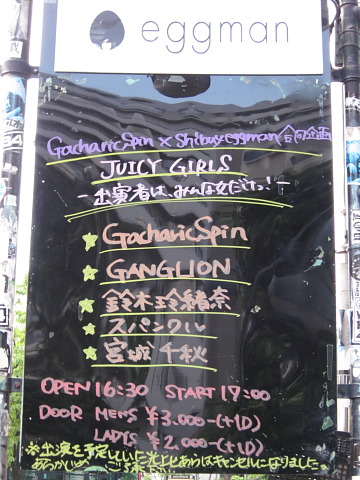 eggman
Gacharic Spin × Shibuya eggman 合同企画
JUICY GIRLS
－出演者は、みんな女だけっ!－
★ Gacharic Spin
★ GANGLION
★ 鈴木玲緒奈
★ スパンクル
★ 宮城千秋
OPEN 16:30 START 17:00
DOOR MEN'S ¥3.000-(+1D)
LADY'S ¥2.000-(+1D)
※出演を予定していた光上とあらわはキャンセルになりました。
あらかじめ